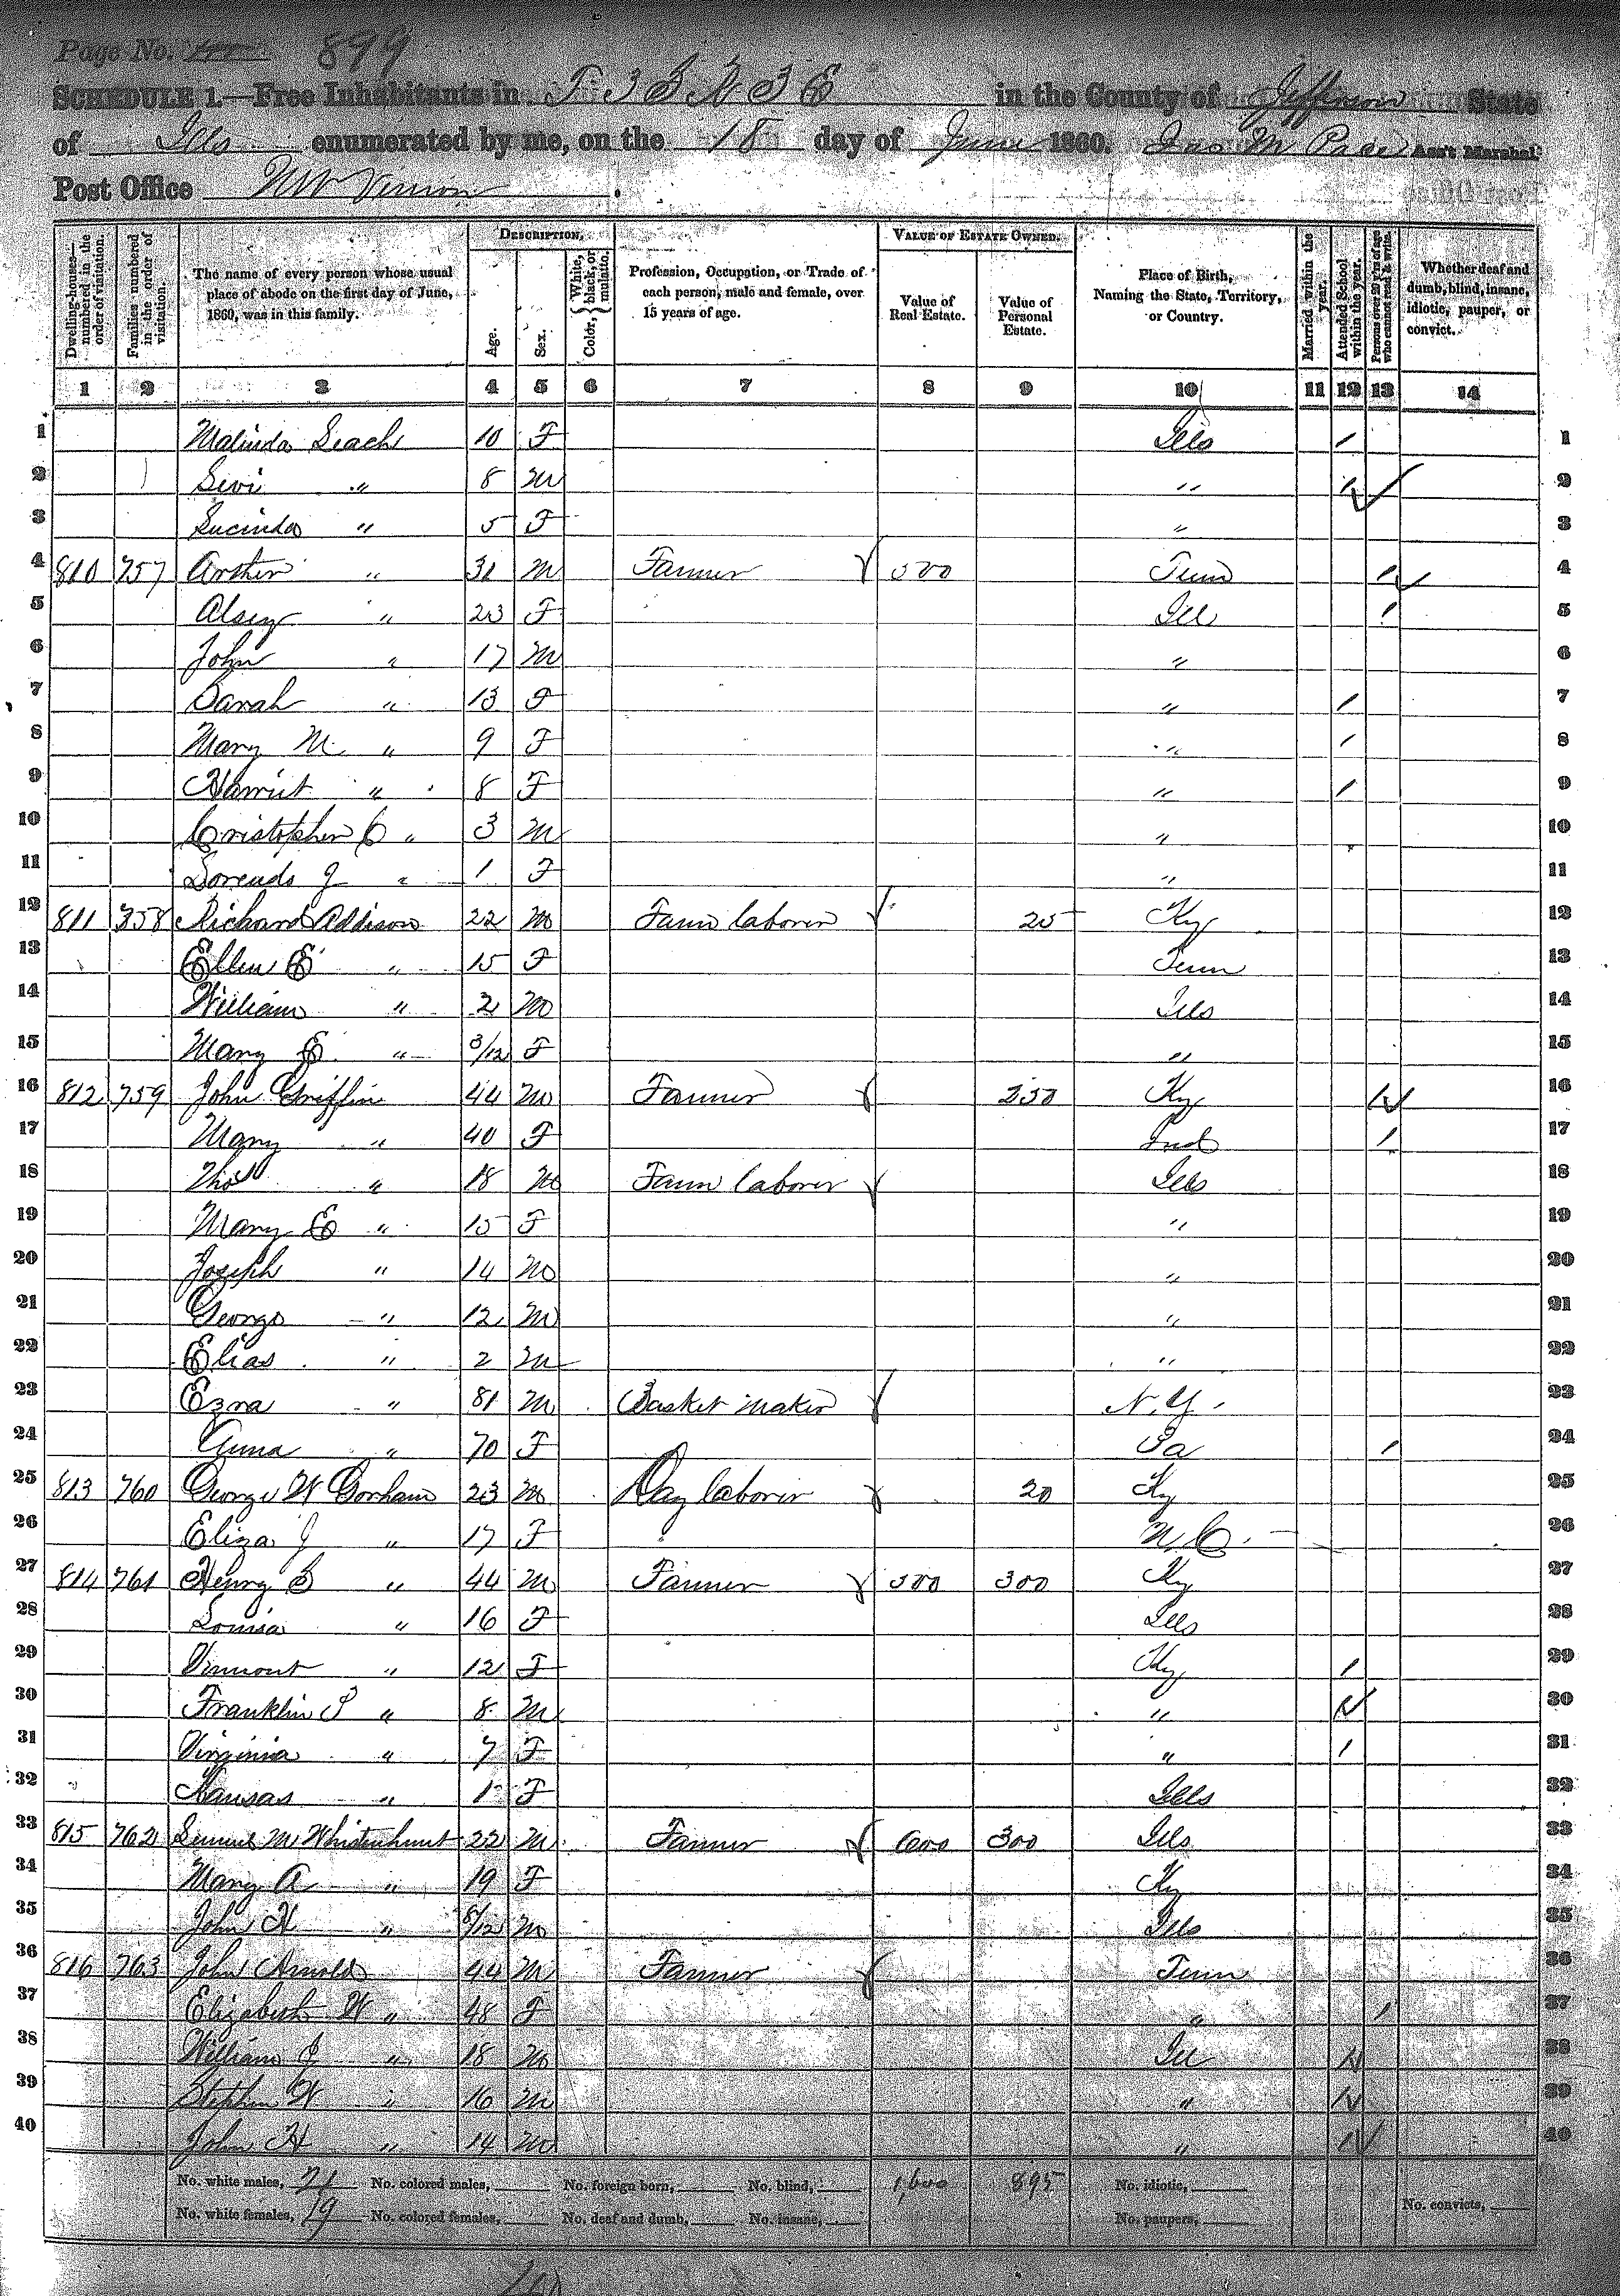 Page No. 899
SCHEDULE 1.—Free Inhabitants in T 3 S N 3 E in the County of Jefferson State
of Ills enumerated by me, on the 18 day of June 1860. Jas M Pace Ass't Marshal.
Post Office Mt Vernon.
Dwelling-houses—numbered in the order of visitation. Families numbered in the order of visitation. The name of every person whose usual place of abode on the first day of June, 1860, was in this family. DESCRIPTION. Age. Sex. Color, {White, black, or mulatto. Profession, Occupation, or Trade of each person, male and female, over 15 years of age. VALUE OF ESTATE OWNED. Value of Real Estate. Value of Personal Estate. Place of Birth, Naming the State, Territory, or Country. Married within the year. Attended School within the year. Persons over 20 y'rs of age who cannot read & write. Whether deaf and dumb, blind, insane, idiotic, pauper, or convict.
1 2 3 4 5 6 7 8 9 10 11 12 13 14
1 Malinda Leach 10 F Ills / 1
2 Levi " 8 M " / 2
3 Lucinda " 5 F " 3
4 810 757 " 31 M Farmer 500 Tenn / 4
5 Alsey " 23 F Ill / 5
6 John " 17 M " 6
7 Sarah " 13 F " / 7
8 Mary M. " 9 F " / 8
9 Harriet " 8 F " / 9
10 Cristopher C " 3 M " 10
11 J " 1 F " 11
12 811 758 Richard Addison 22 M Farm laborer 25 Ky 12
13 Ellen E " 15 F Tenn 13
14 William " 2 M Ills 14
15 Mary E " 3/12 F " 15
16 812 759 John Griffin 44 M Farmer 250 Ky / 16
17 Mary " 40 F Ind / 17
18 Thos " 18 M Farm laborer Ills 18
19 Mary E " 15 F " 19
20 Joseph " 14 M " 20
21 George " 12 M " 21
22 Elias " 2 M " 22
23 Ezra " 81 M Basket maker N.Y. 23
24 Anna " 70 F Pa / 24
25 813 760 George W Gorham 23 M Day laborer 20 Ky 25
26 Eliza J " 17 F N.C. 26
27 814 761 Henry S " 44 M Farmer 500 300 Ky 27
28 Louisa " 16 F Ills 28
29 Vermont " 12 F Ky / 29
30 Franklin P " 8 M " / 30
31 Virginia " 7 F " / 31
32 Kansas " 1 F Ills 32
33 815 762 Samuel M Whisenhunt 22 M Farmer 600 300 Ills 33
34 Mary A " 19 F Ky 34
35 John H " 8/12 M Ills 35
36 816 763 John Arnold 44 M Farmer Tenn 36
37 Elizabeth W " 48 F " / 37
38 William J " 18 M Ill / 38
39 Stephen W " 16 M " / 39
40 John H " 14 M " / 40
No. white males, 21 No. colored males, No. foreign born, No. blind, 1,600 895 No. idiotic,
No. white females, 19 No. colored females, No. deaf and dumb, No. insane, No. paupers, No. convicts,